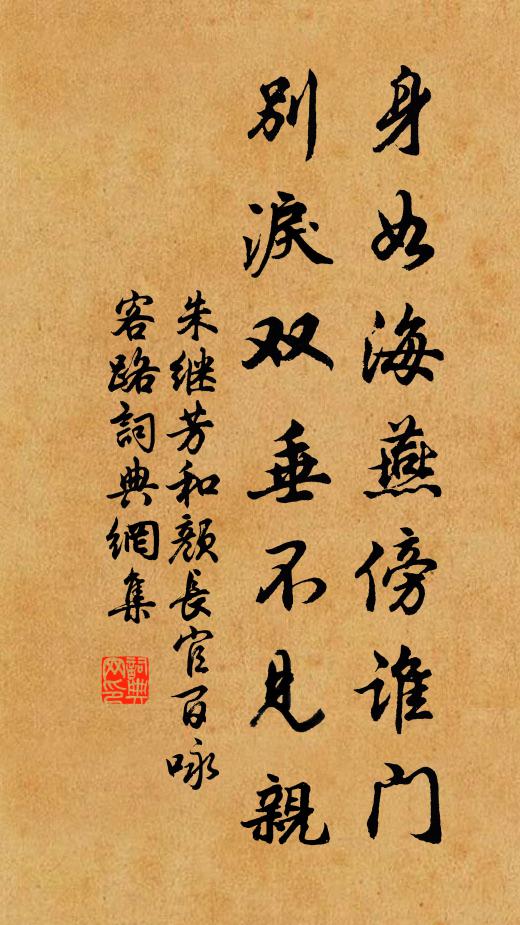 身如海燕傍谁门
别淚双垂不見親
朱继芳和颜長官百咏
客路詞典網集
詞典网印